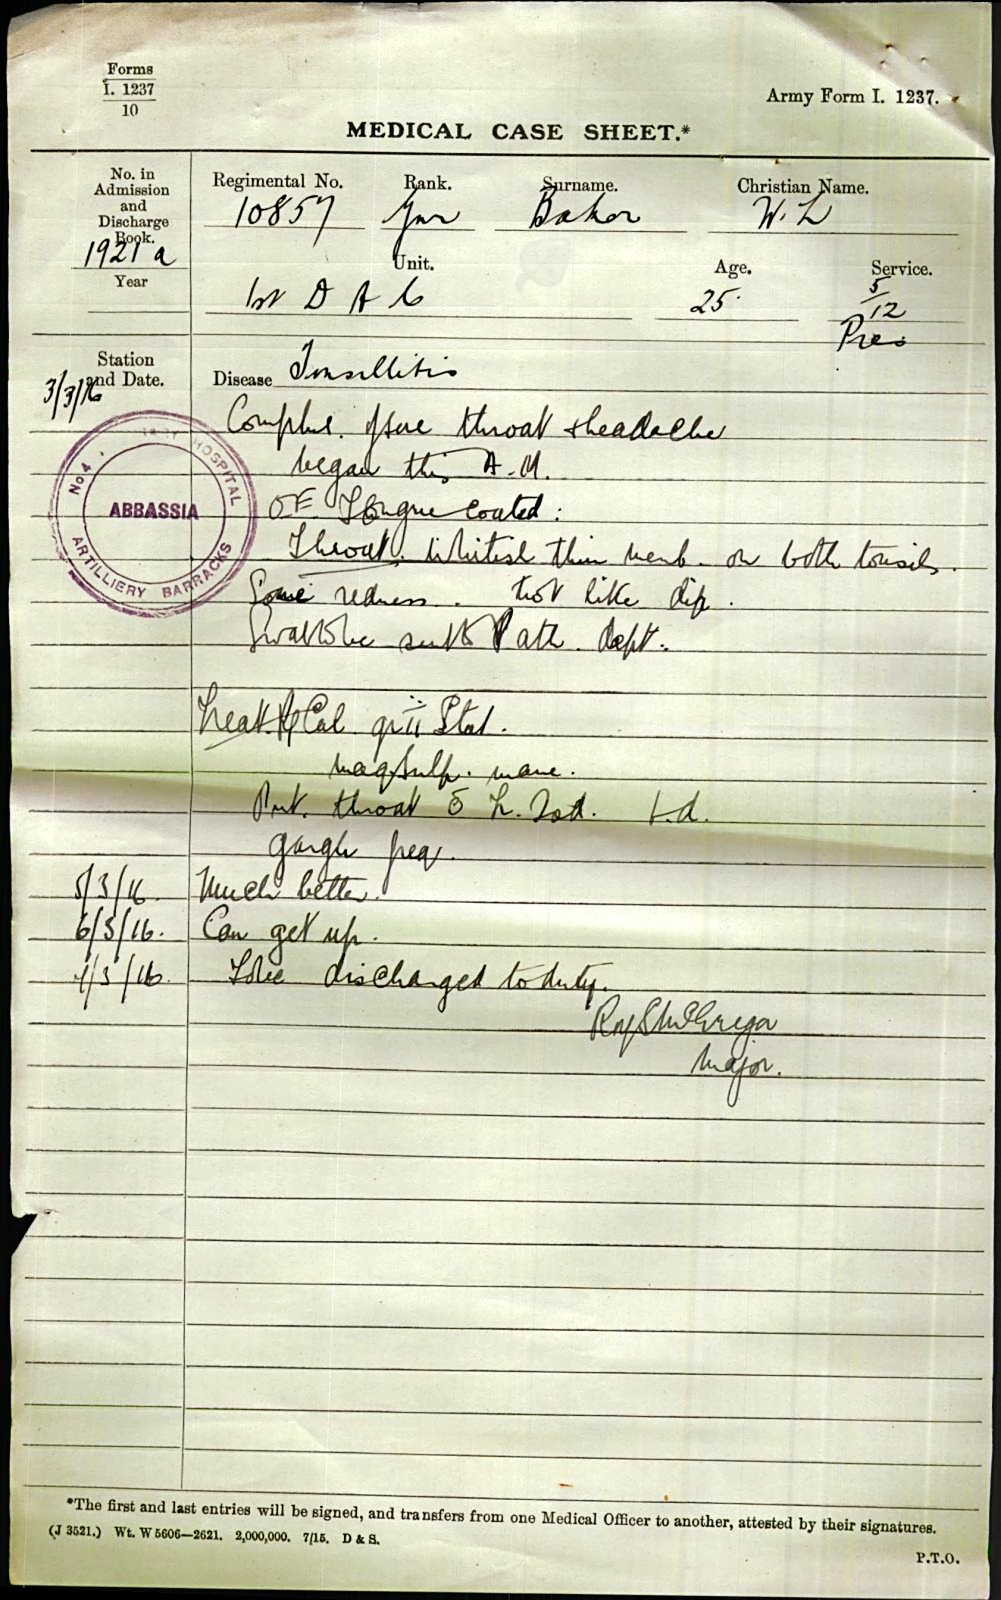 Forms
I. 1237
10
Army Form I. 1237.
MEDICAL CASE SHEET.*
No. in
Admission
and
Discharge
Book.
1921 a
Year
Regimental No. Rank. Surname. Christian Name.
10857 Gnr Baker W. L
Unit. Age. Service.
1st D A C 25 5/12
Pres
Station
and Date.
3/3/16
Disease Tonsillitis
No 4. HOSPITAL
ABBASSIA
ARTILLIERY BARRACKS
Complns. of sore throat & headache
began this A.M.
OE Tongue coated:
Throat. Whitish thin memb. on both tonsils.
Some redness. not like dip.
Swab to be sent to Path. dept.
Treat. Cal. gr ii Stat.
mag Sulp. mane.
throat t.d.
gargle freq.
5/3/16. Much better.
6/3/16. Can get up.
7/3/16. To be discharged to duty.
McGregor
Major.
*The first and last entries will be signed, and transfers from one Medical Officer to another, attested by their signatures.
(J 3521.) Wt. W 5606—2621. 2,000,000. 7/15. D & S.
P.T.O.